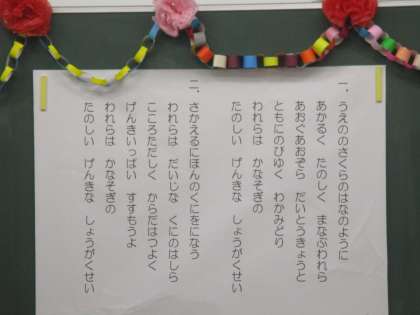 一．うえののさくらのはなのように
あかるく　たのしく　まなぶわれら
あおぐあおぞら　だいとうきょうと
ともにのびゆく　わかみどり
われらは　かなそぎの
たのしい　げんきな　しょうがくせい
二．さかえるにほんのくにをになう
われらは　だいじな　くにのはしら
こころただしく　からだはつよく
げんきいっぱい　すすもうよ
われらは　かなそぎの
たのしい　げんきな　しょうがくせい